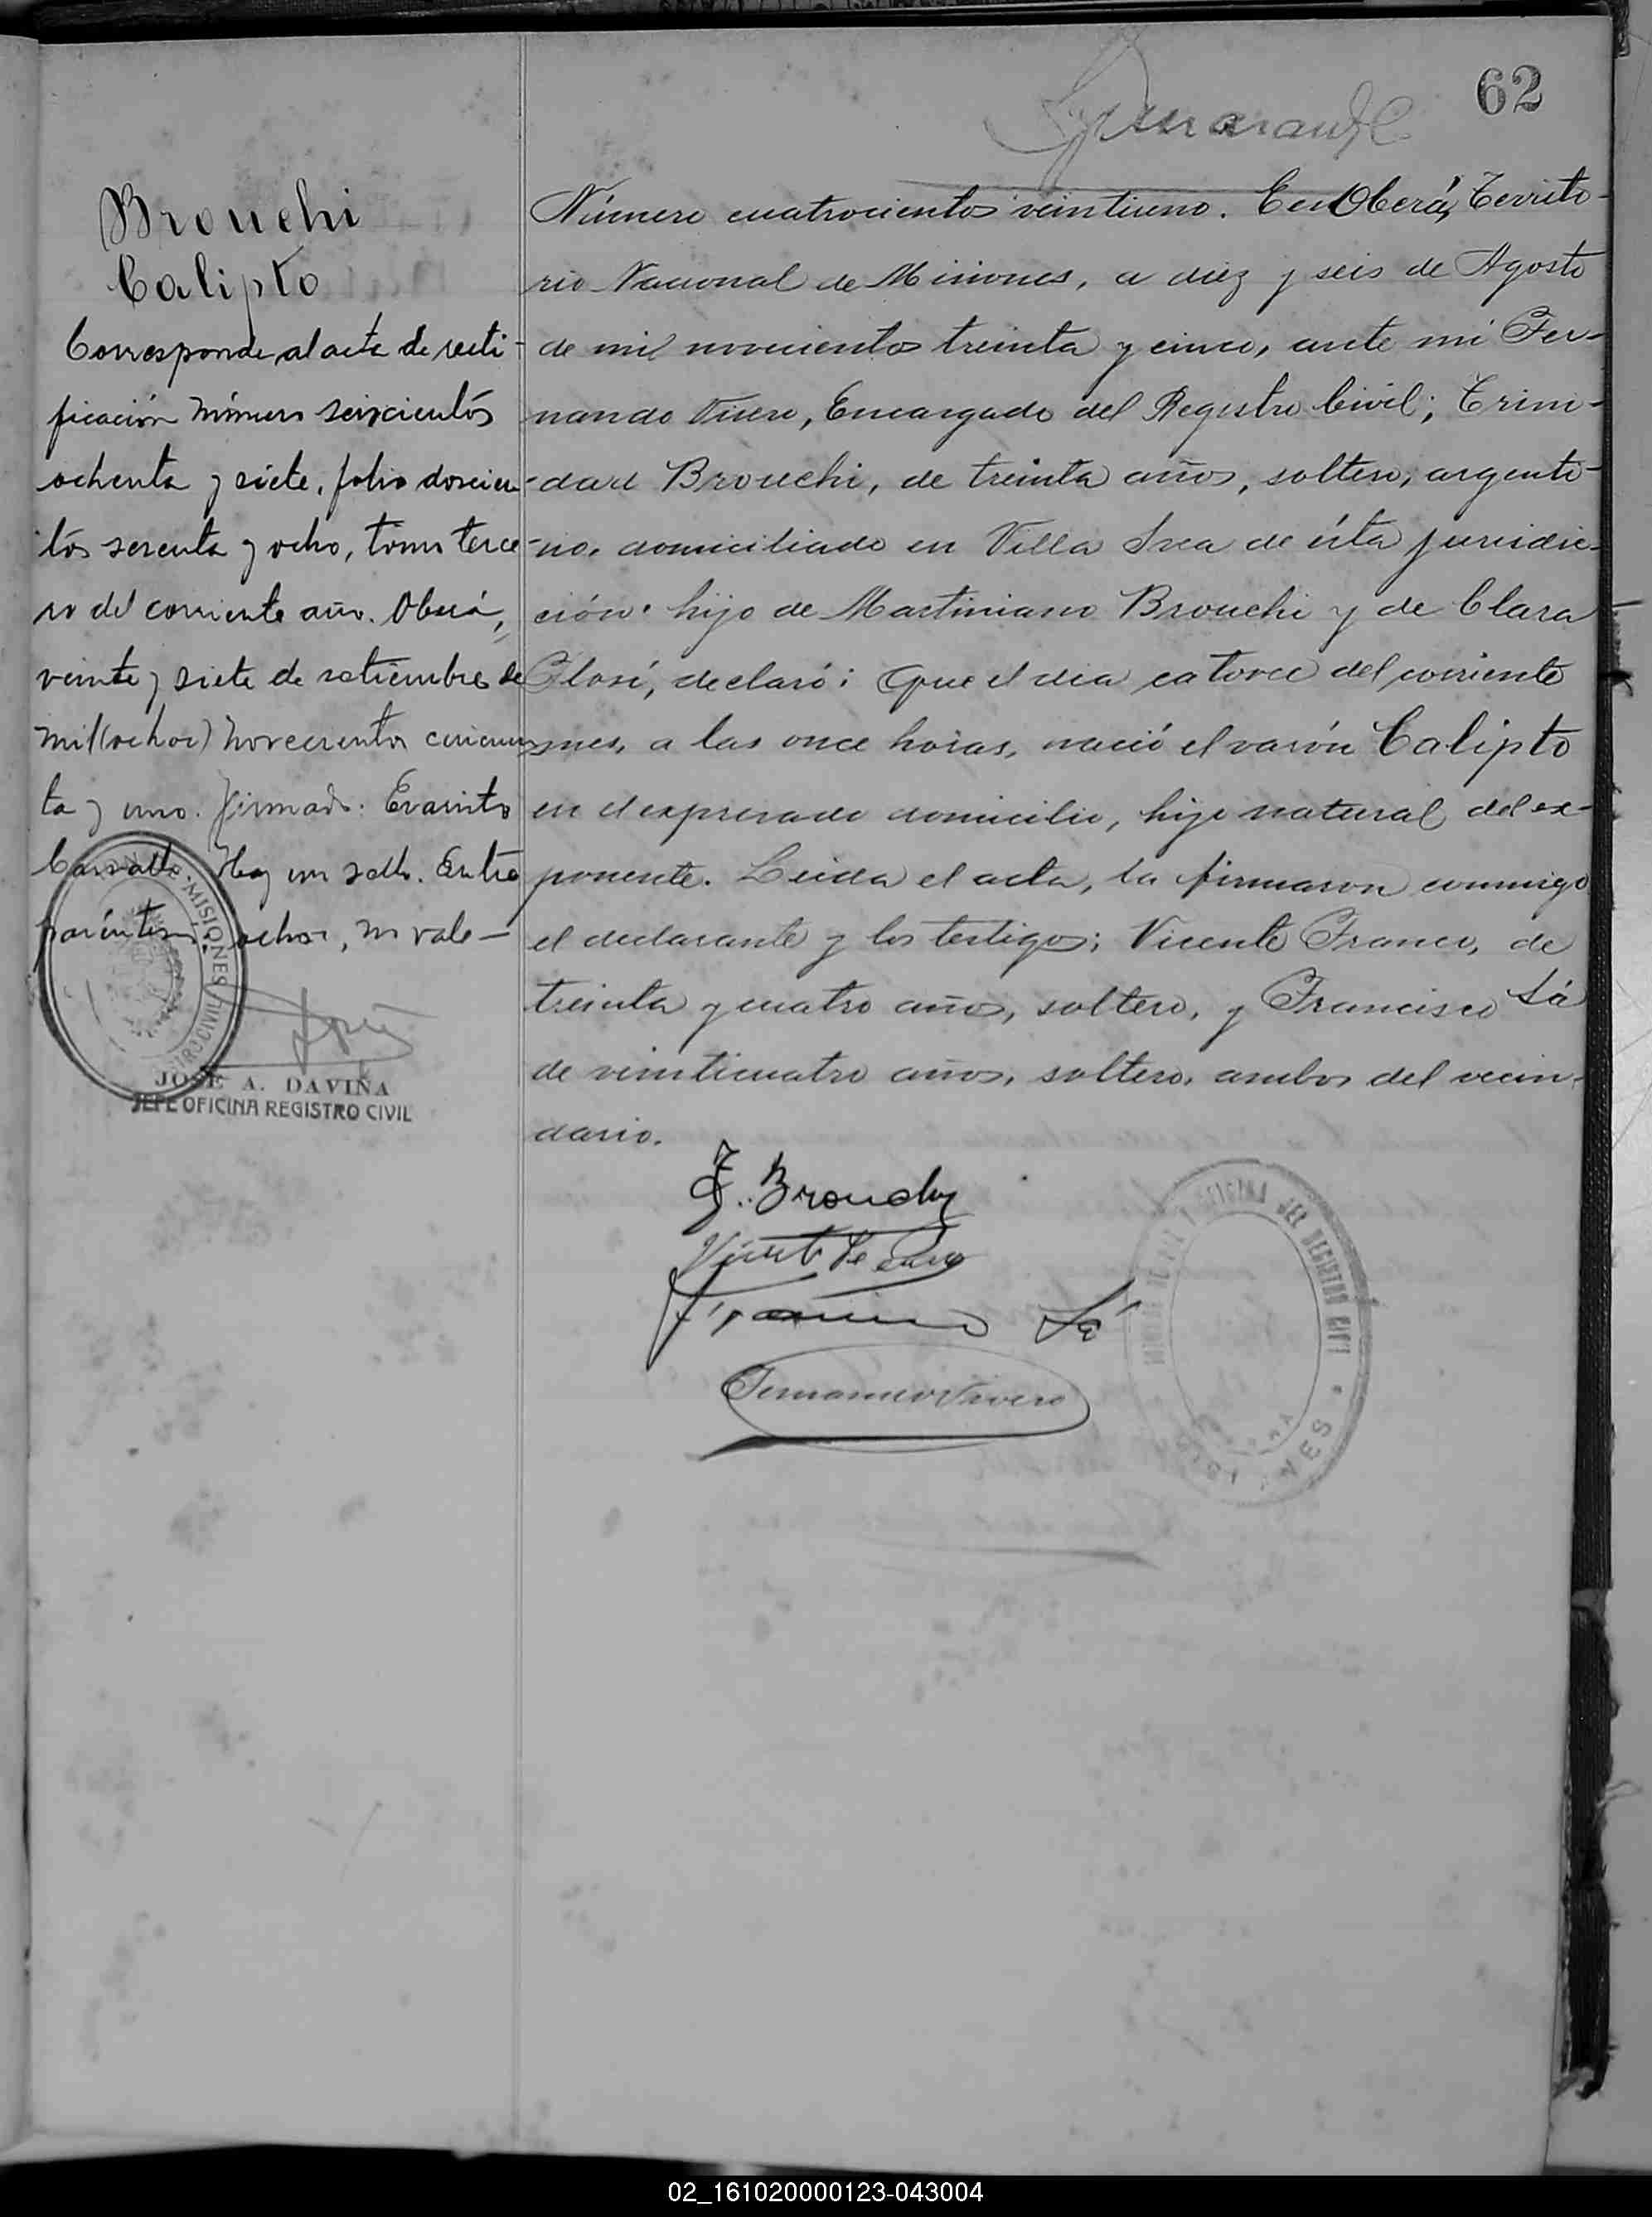 62
Brouchi
Calipto
Corresponde al acta de recti-
ficación número seiscientos
ochenta y siete, folio doscien-
tos sesenta y ocho, tomo terce
ro del corriente año. Oberá,
veinte y siete de setiembre de
mil (ochoc) novecientos cincuen
ta y uno. firmado: Evaristo
Carvallo. Hay un sello. Entre
paréntesis, ochoc, no vale-
MISIONES
CIVIL
JOSE A. DAVIÑA
JEFE OFICINA REGISTRO CIVIL
Número cuatrocientos veintiuno. En Oberá, Territo-
rio Nacional de Misiones, a diez y seis de Agosto
de mil novecientos treinta y cinco, ante mi Fer-
nando Vivero, Encargado del Registro Civil; Trini-
-dad Brouchi, de treinta años, soltero, argenti-
-no, domiciliado en Villa Svea de ésta jurisdic-
ción. hijo de Martiniano Brouchi y de Clara
Closi, declaró: Que el dia catorce del corriente
mes, a las once horas, nació el varón Calipto
en el expresado domicilio, hijo natural del ex-
ponente. Leida el acta, la firmaron conmigo
el declarante y los testigos; Vicente Franco, de
treinta y cuatro años, soltero, y Francisco Sá
de veinticuatro años, soltero, ambos del vecin-
dario.
T. Brouchy
Francisco Sá
Fernando Vivero
OFICINA DEL REGISTRO CIVIL
02_161020000123-043004